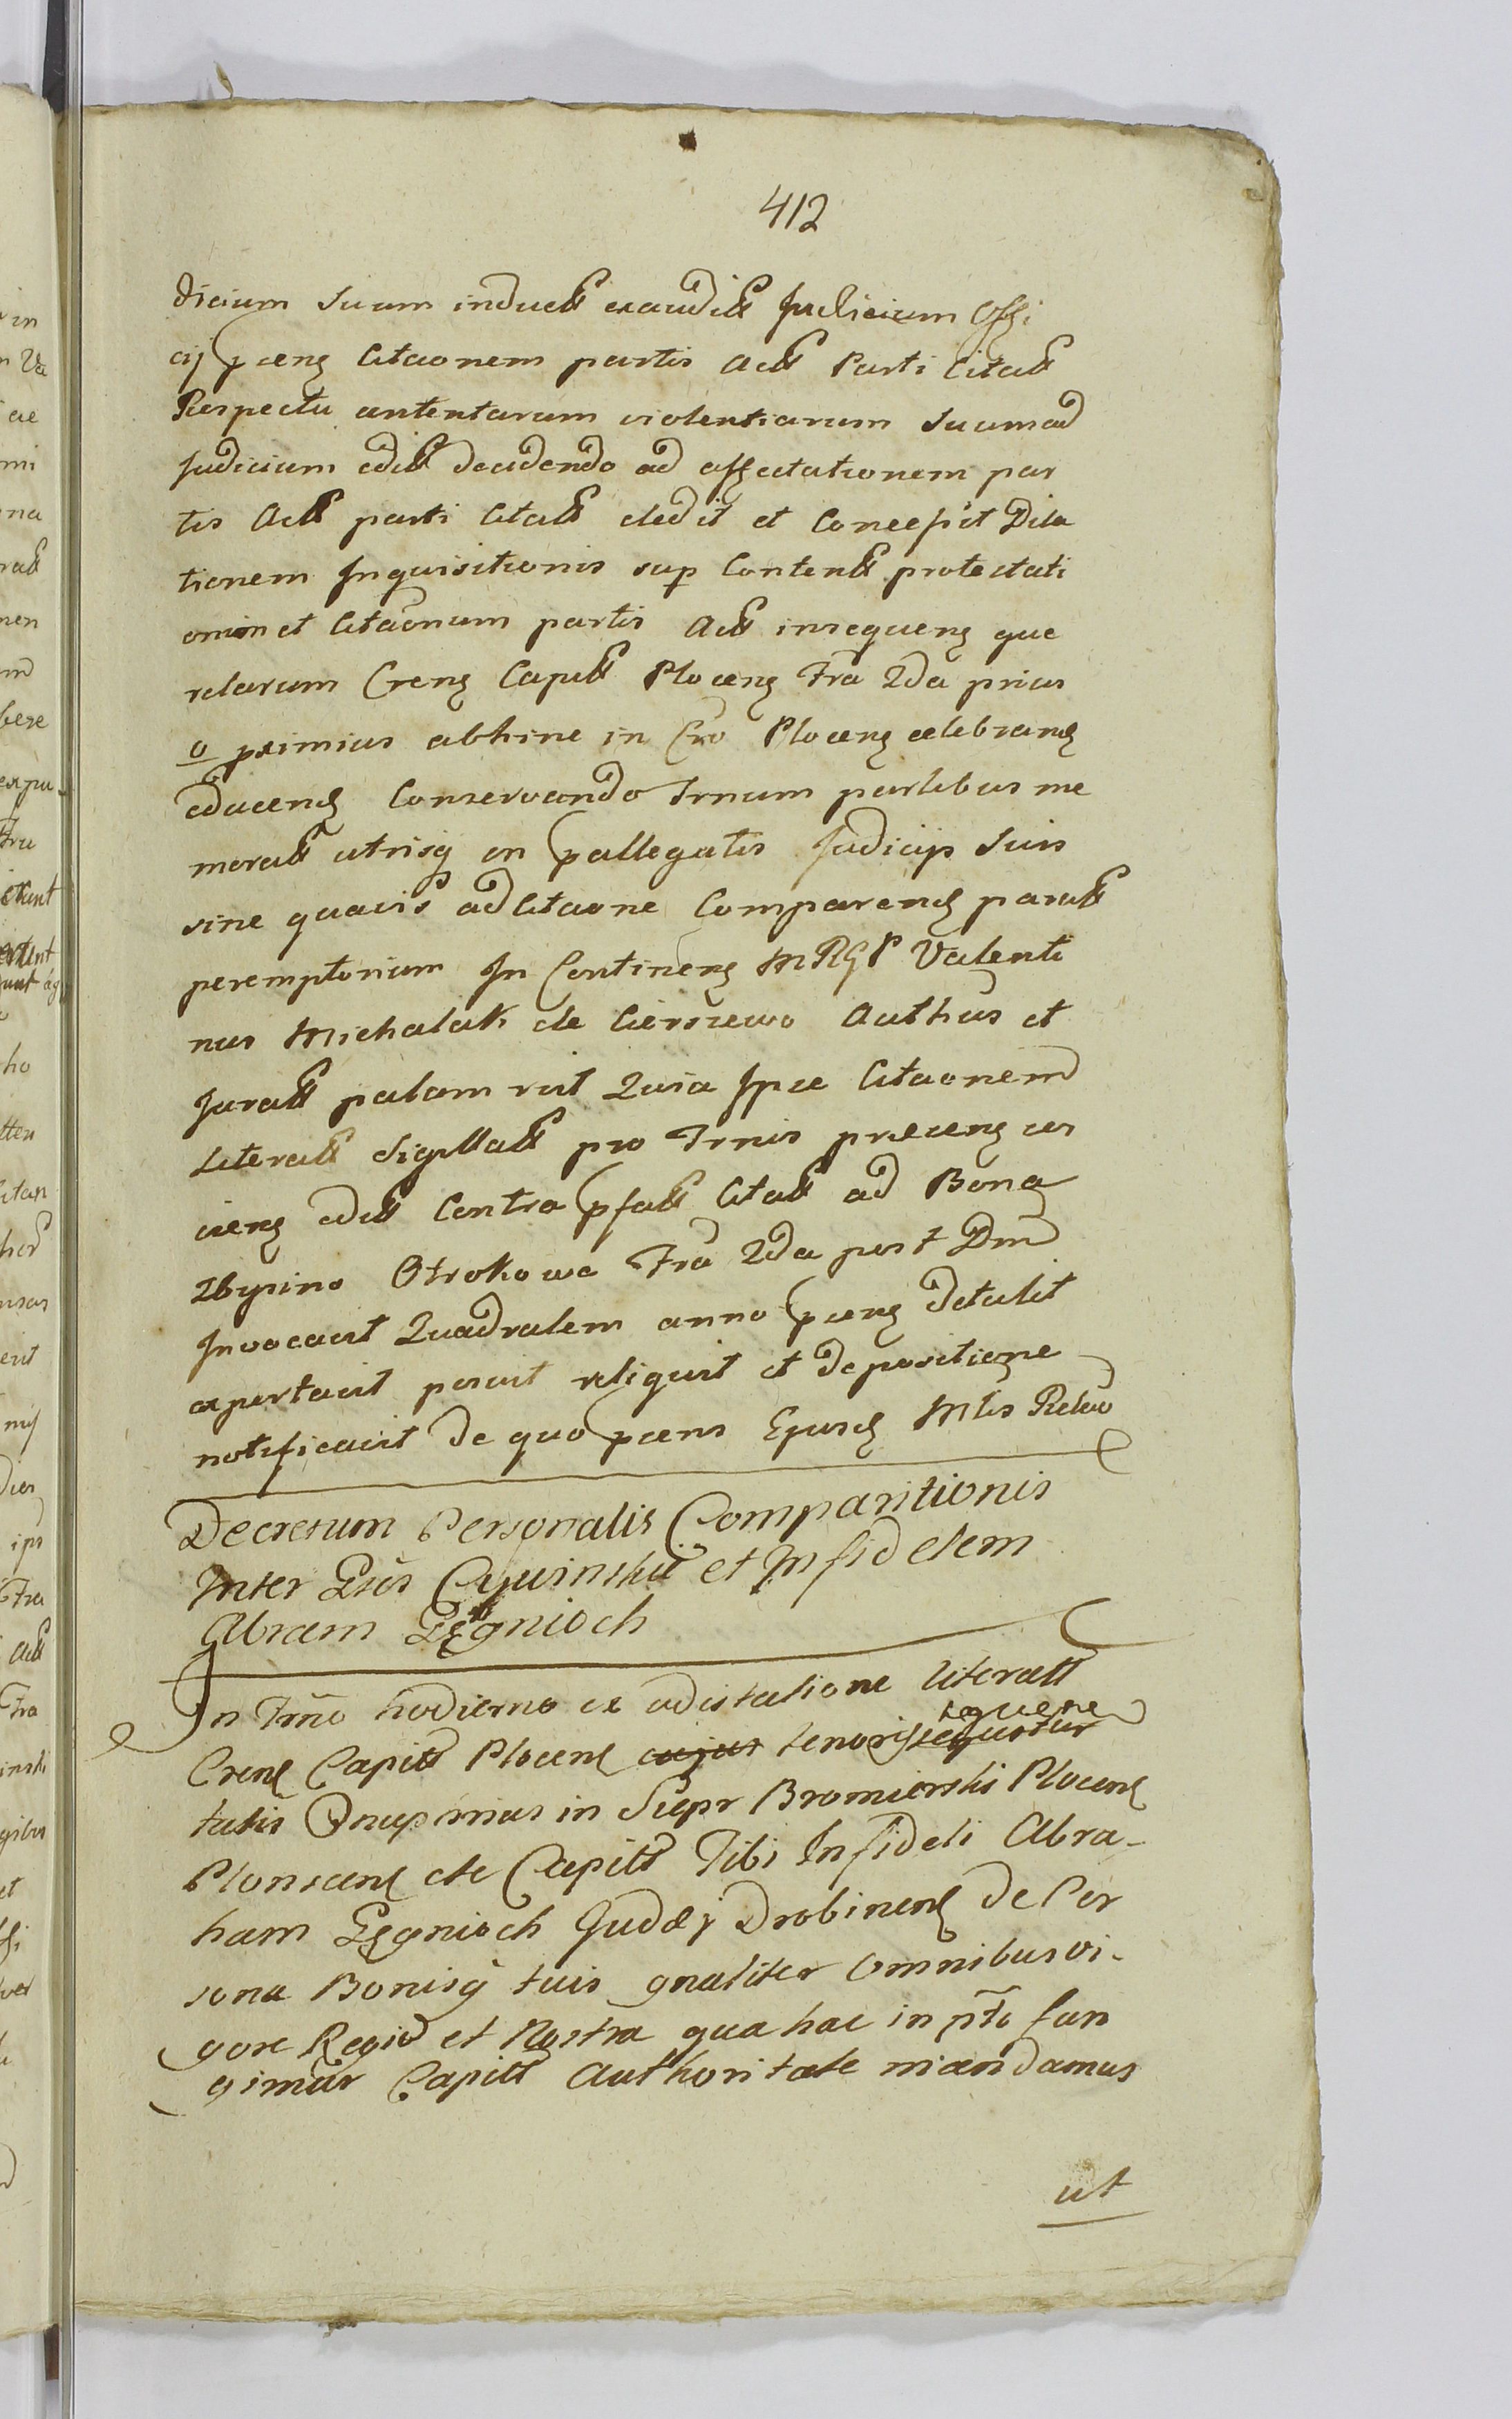 412
dicium Suum induct exaudit Judicium Offi
cij pcens Citaonem partis Act Parti Citat
Respectu antentarum violentiarum Suum ad
Judicium edit decidendo ad affectationem par
tis Act parti Citat dedit et Concessit Dila
tionem Inquisitionis sup Content protestati
onum et Citaonum partis Act insequens que
relarum Crens Capit Plocens Fra 2da prius
o pximius abhinc in Cro Plocens celebrand
educend Conservando Trnum partibus me
morat utrisq in pallegatis Judicijs Suis
sine quavis adCitaone Comparend parat
peremptorium In Continens MRGP Valenti
nus Michalak de Cierszewo Authus et
Jurat palam rect Quia Ipse Citaonem
Literat Sigillat pro Trnis praecens
ciens edit Contra pfat Citat ad Bona
Zbyino Otrokowa Fra 2da post Dm
Invocavit Quadralem anno pcens detulit
exportavit posuit reliquit et depositione
notificavit de quo pcens Ejusd Mtis Relao
Decretum Personalis Comparitionis
Inter Gsos Cywinskie et Infidelem
Abram Zegnioch
In Trno hodierno ex adcitatione literatt
Crens Capitt Plocens cujus tenoris sequitur sequene
talis Onuphrius in Siepr Bromierski Plocens
Plonscens etc Capitt Tibi Infideli Abra-
ham Zegnioch Judaej Drobinens de Per
sona Bonisq tuis gnaliter omnibus vi-
gore Regia et Nostra qua hac in pte fun
gimur Capitt Authoritate mandamus
ut